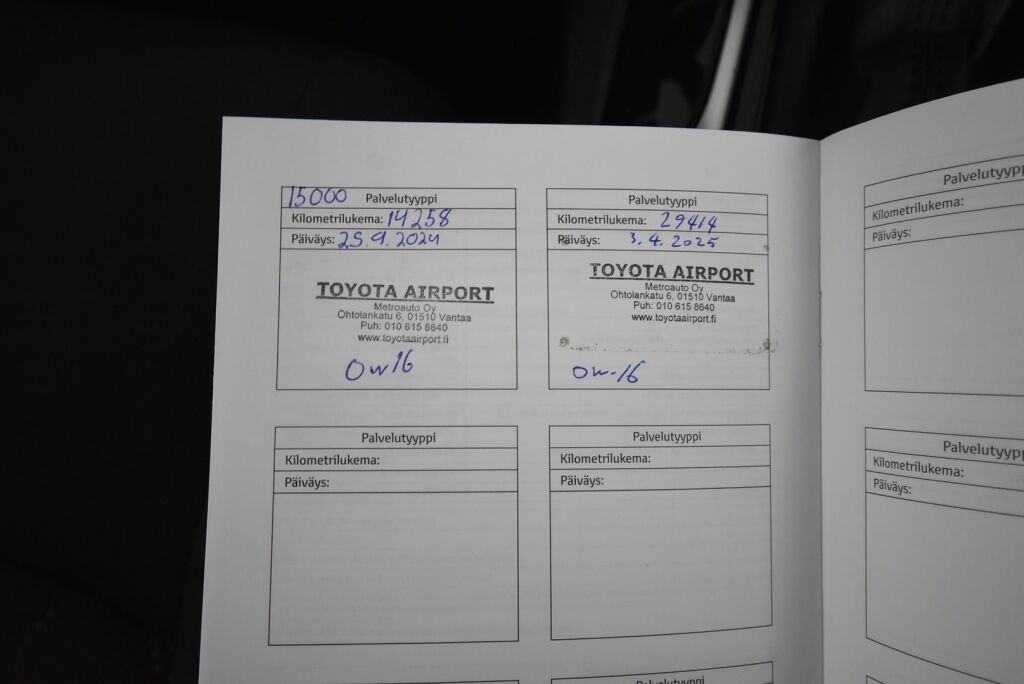 15000 Palvelutyyppi
Kilometrilukema: 14258
Päiväys: 25.9.2024
TOYOTA AIRPORT
Metroauto Oy
Ohtolankatu 6, 01510 Vantaa
Puh: 010 615 8640
www.toyotaairport.fi
0W16
Palvelutyyppi
Kilometrilukema: 29414
Päiväys: 3.4.2025
TOYOTA AIRPORT
Metroauto Oy
Ohtolankatu 6, 01510 Vantaa
Puh: 010 615 8640
www.toyotaairport.fi
0W-16
Palvelutyypp
Kilometrilukema:
Päiväys:
Palvelutyyppi
Kilometrilukema:
Päiväys:
Palvelutyyppi
Kilometrilukema:
Päiväys:
Palvelutyypp
Kilometrilukema:
Päiväys:
Palvelutyyppi